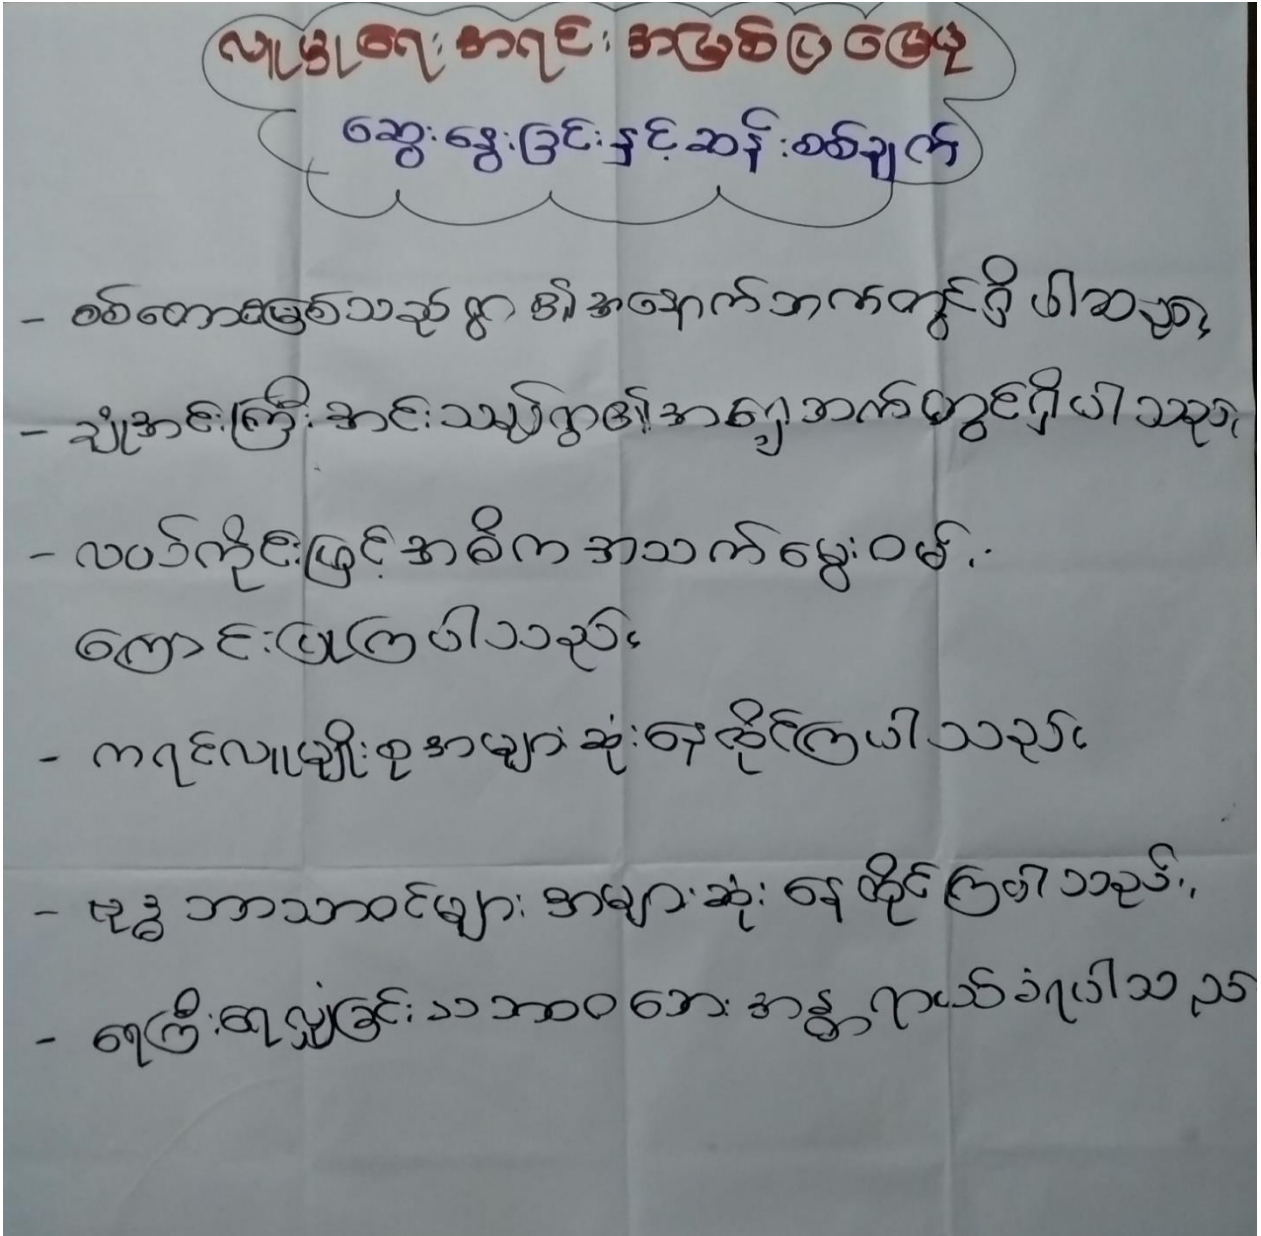 လူမှုရေး အရင်း အမြစ်ပြ မြေပုံ
ဆွေးနွေးခြင်းနှင့် ဆန်းစစ်ချက်
- စစ်တောင်းမြစ်သည် ရွာ၏ အနောက်ဘက်တွင်ရှိ ပါသည်။
- အင်းကြီးအင်းသည် ရွာ၏ အရှေ့ဘက်တွင်ရှိ ပါသည်။
- လယ်ကိုင်းဖြင့် အဓိက အသက်မွေးဝမ်း
ကြောင်းပြုကြပါသည်။
- ကရင်လူမျိုးစု အများဆုံးနေထိုင်ကြပါသည်။
- ဗုဒ္ဓဘာသာဝင်များ အများဆုံး နေထိုင်ကြပါသည်။
- ရေကြီးရေလျှံခြင်း သဘာဝဘေး အန္တရာယ်ခံရပါသည်